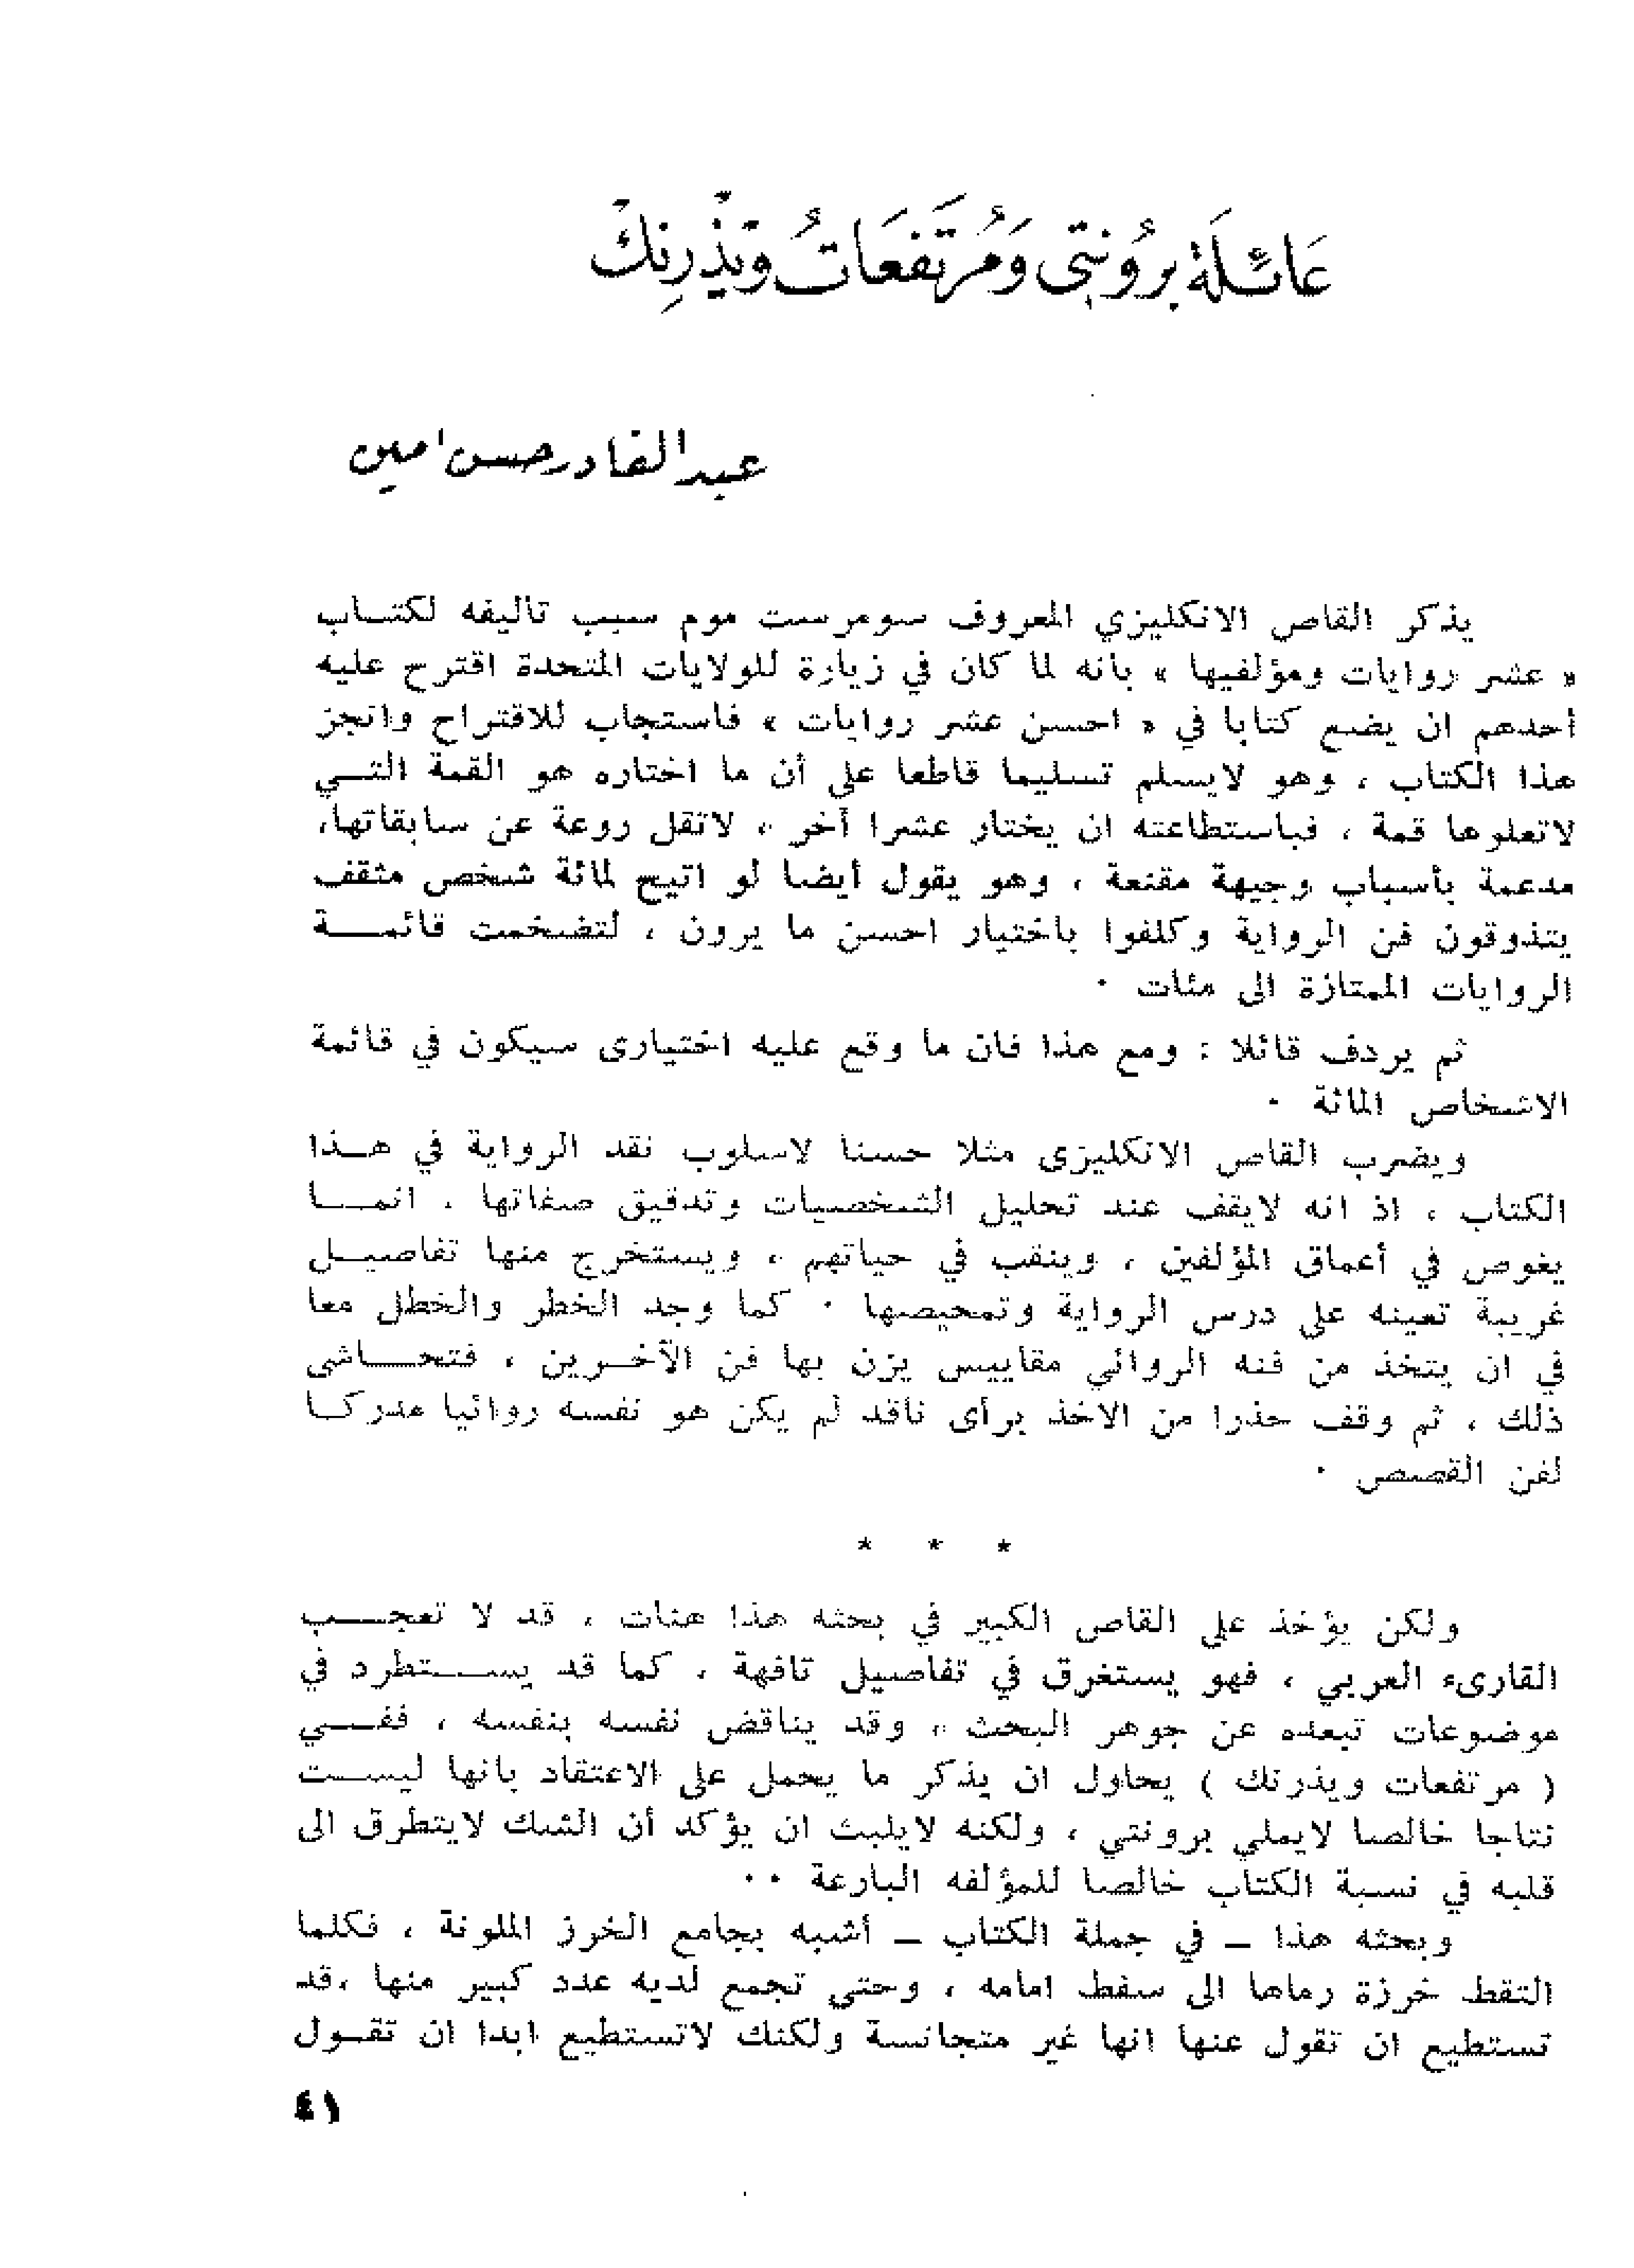 عَائلَة برُونتي وَمُرتَفعَاتُ وَيذْرِنِكْ
عبدالقادر حسن امين
يذكر القاص الانكليزي المعروف سومرست موم سبب تاليفه لكتـاب
« عشر روايات ومؤلفيها » بانه لما كان في زيارة للولايات المتحدة اقترح عليه
أحدهم ان يضع كتابا في « احسن عشر روايات » فاستجاب للاقتراح وانجز
هذا الكتاب ، وهو لايسلم تسليما قاطعا على أن ما اختاره هو القمة التـي
لاتعلوها قمة ، فباستطاعته ان يختار عشرا آخر ، لاتقل روعة عن سابقاتها،
مدعمة بأسباب وجيهة مقنعة ، وهو يقول أيضا لو اتيح لمائة شخص مثقف
يتذوقون فن الرواية وكلفوا باختيار احسن ما يرون ، لتضخمت قائمـة
الروايات الممتازة الى مئات ٠
ثم يردف قائلا : ومع هذا فان ما وقع عليه اختيارى سيكون في قائمة
الاشخاص المائة ٠
ويضرب القاص الانكليزى مثلا حسنا لاسلوب نقد الرواية في هـذا
الكتاب ، اذ انه لايقف عند تحليل الشخصيات وتدقيق صفاتها ، انمـا
يغوص في أعماق المؤلفين ، وينقب في حياتهم ، ويستخرج منها تفاصيـل
غريبة تعينه على درس الرواية وتمحيصها ٠ كما وجد الخطر والخطل معا
في ان يتخذ من فنه الروائي مقاييس يزن بها فن الآخـرين ، فتحـاشى
ذلك ، ثم وقف حذرا من الاخذ برأى ناقد لم يكن هو نفسه روائيا مدركـا
لفن القصص ٠
* * *
ولكن يؤخذ على القاص الكبير في بحثه هذا هنات ، قد لا تعجـب
القارىء العربي ، فهو يستغرق في تفاصيل تافهة ، كما قد يسـتطرد في
موضوعات تبعده عن جوهر البحث ، وقد يناقض نفسه بنفسه ، ففـي
( مرتفعات ويذرنك ) يحاول ان يذكر ما يحمل على الاعتقاد بانها ليسـت
نتاجا خالصا لايملي برونتي ، ولكنه لايلبث ان يؤكد أن الشك لايتطرق الى
قلبه في نسبة الكتاب خالصا للمؤلفه البارعة ٠٠
وبحثه هذا ــ في جملة الكتاب ــ أشبه بجامع الخرز الملونة ، فكلما
التقط خرزة رماها الى سفط امامه ، وحتى تجمع لديه عدد كبير منها ،قد
تستطيع ان تقول عنها انها غير متجانسة ولكنك لاتستطيع ابدا ان تقـول
٤١